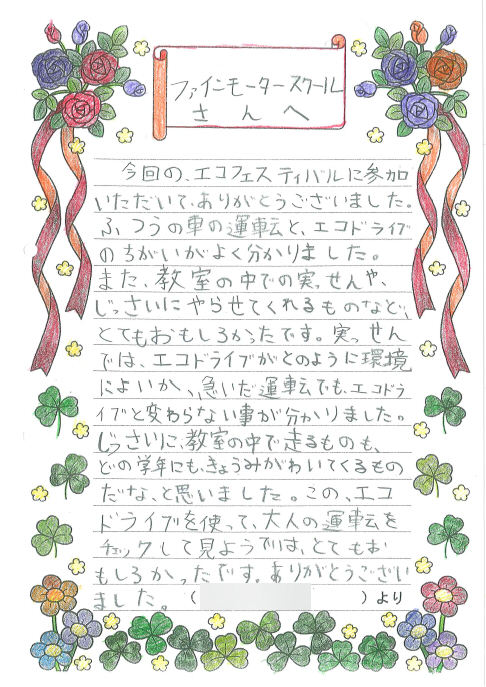 ファインモータースクール
さんへ
今回の、エコフェスティバルに参加
いただいて、ありがとうございました。
ふつうの車の運転と、エコドライブ
のちがいがよく分かりました。
また、教室の中での実っせんや、
じっさいにやらせてくれるものなど、
とてもおもしろかったです。実っせん
では、エコドライブがどのように環境
によいか、急いだ運転でも、エコドラ
イブと変わらない事が分かりました。
じっさいに、教室の中で走るものも、
どの学年にも、きょうみがわいてくるもの
だな、と思いました。この、エコ
ドライブを使って、大人の運転を
チェックして見ようでは、とてもお
もしろかったです。ありがとうござい
ました。（　　　）より